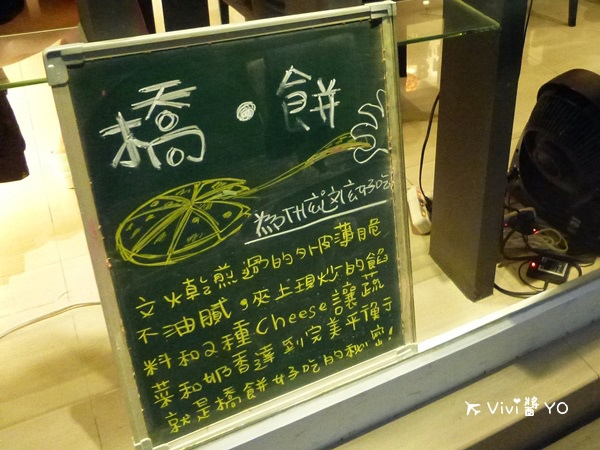 橋・餅
為什ㄇ這ㄇ好吃
文火乾煎過的外皮薄脆
不油膩，夾上現炒的餡
料和2種cheese讓蔬
菜和奶香達到完美平衡于
就是橋餅好吃的秘密!
Vivi醬 YO